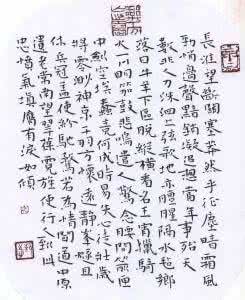 長淮望斷關塞莽然平征塵暗霜風
勁悄邊聲黯銷凝追想當年事殆天
數非人力洙泗上絃歌地亦羶腥隔水氈鄉
落日牛羊下區脫縱橫看名王宵獵騎
火一川明笳鼓悲鳴遣人驚念腰間箭匣
中劍空埃蠹竟何成時易失心徒壯歲
將零渺神京干羽方懷遠靜烽燧且
休兵冠蓋使紛馳騖若為情聞道中原
遺老常南望翠葆霓旌使行人到此
忠憤氣填膺有淚如傾